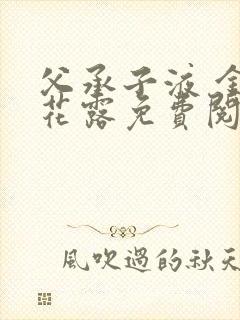 父承子液 金
花露免費閱
風吹過的秋天